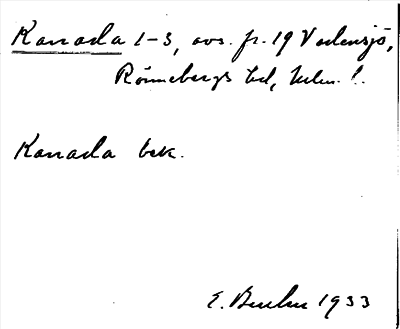 Kanada 1-3, avs. fr. 19 Vedensjö,
Rönnebergs hd, Malm. l.
Kanada bek.
E. 1933